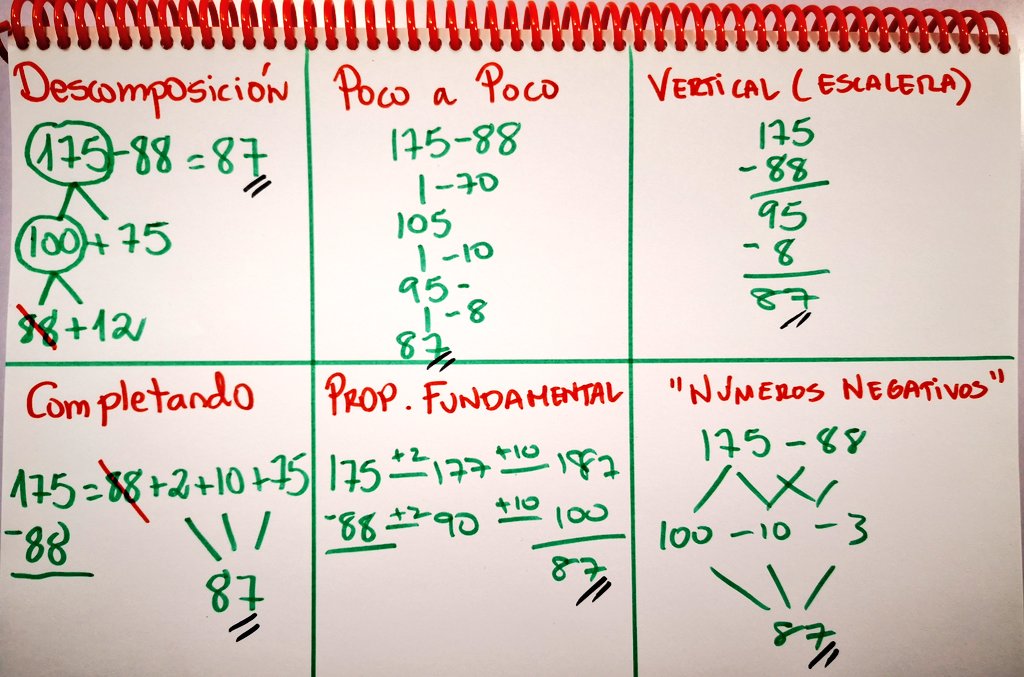 Descomposición
175-88 = 87
100 + 75
88 + 12
Poco a Poco
175-88
-70
105
-10
95-
-8
87
VERTICAL (ESCALERA)
175
-88
95
-8
87
Completando
175 = 88 + 2 + 10 + 75
-88
87
PROP. FUNDAMENTAL
175 +2 177 +10 187
-88 +2 90 +10 100
87
"NÚMEROS NEGATIVOS"
175 - 88
100 - 10 - 3
87